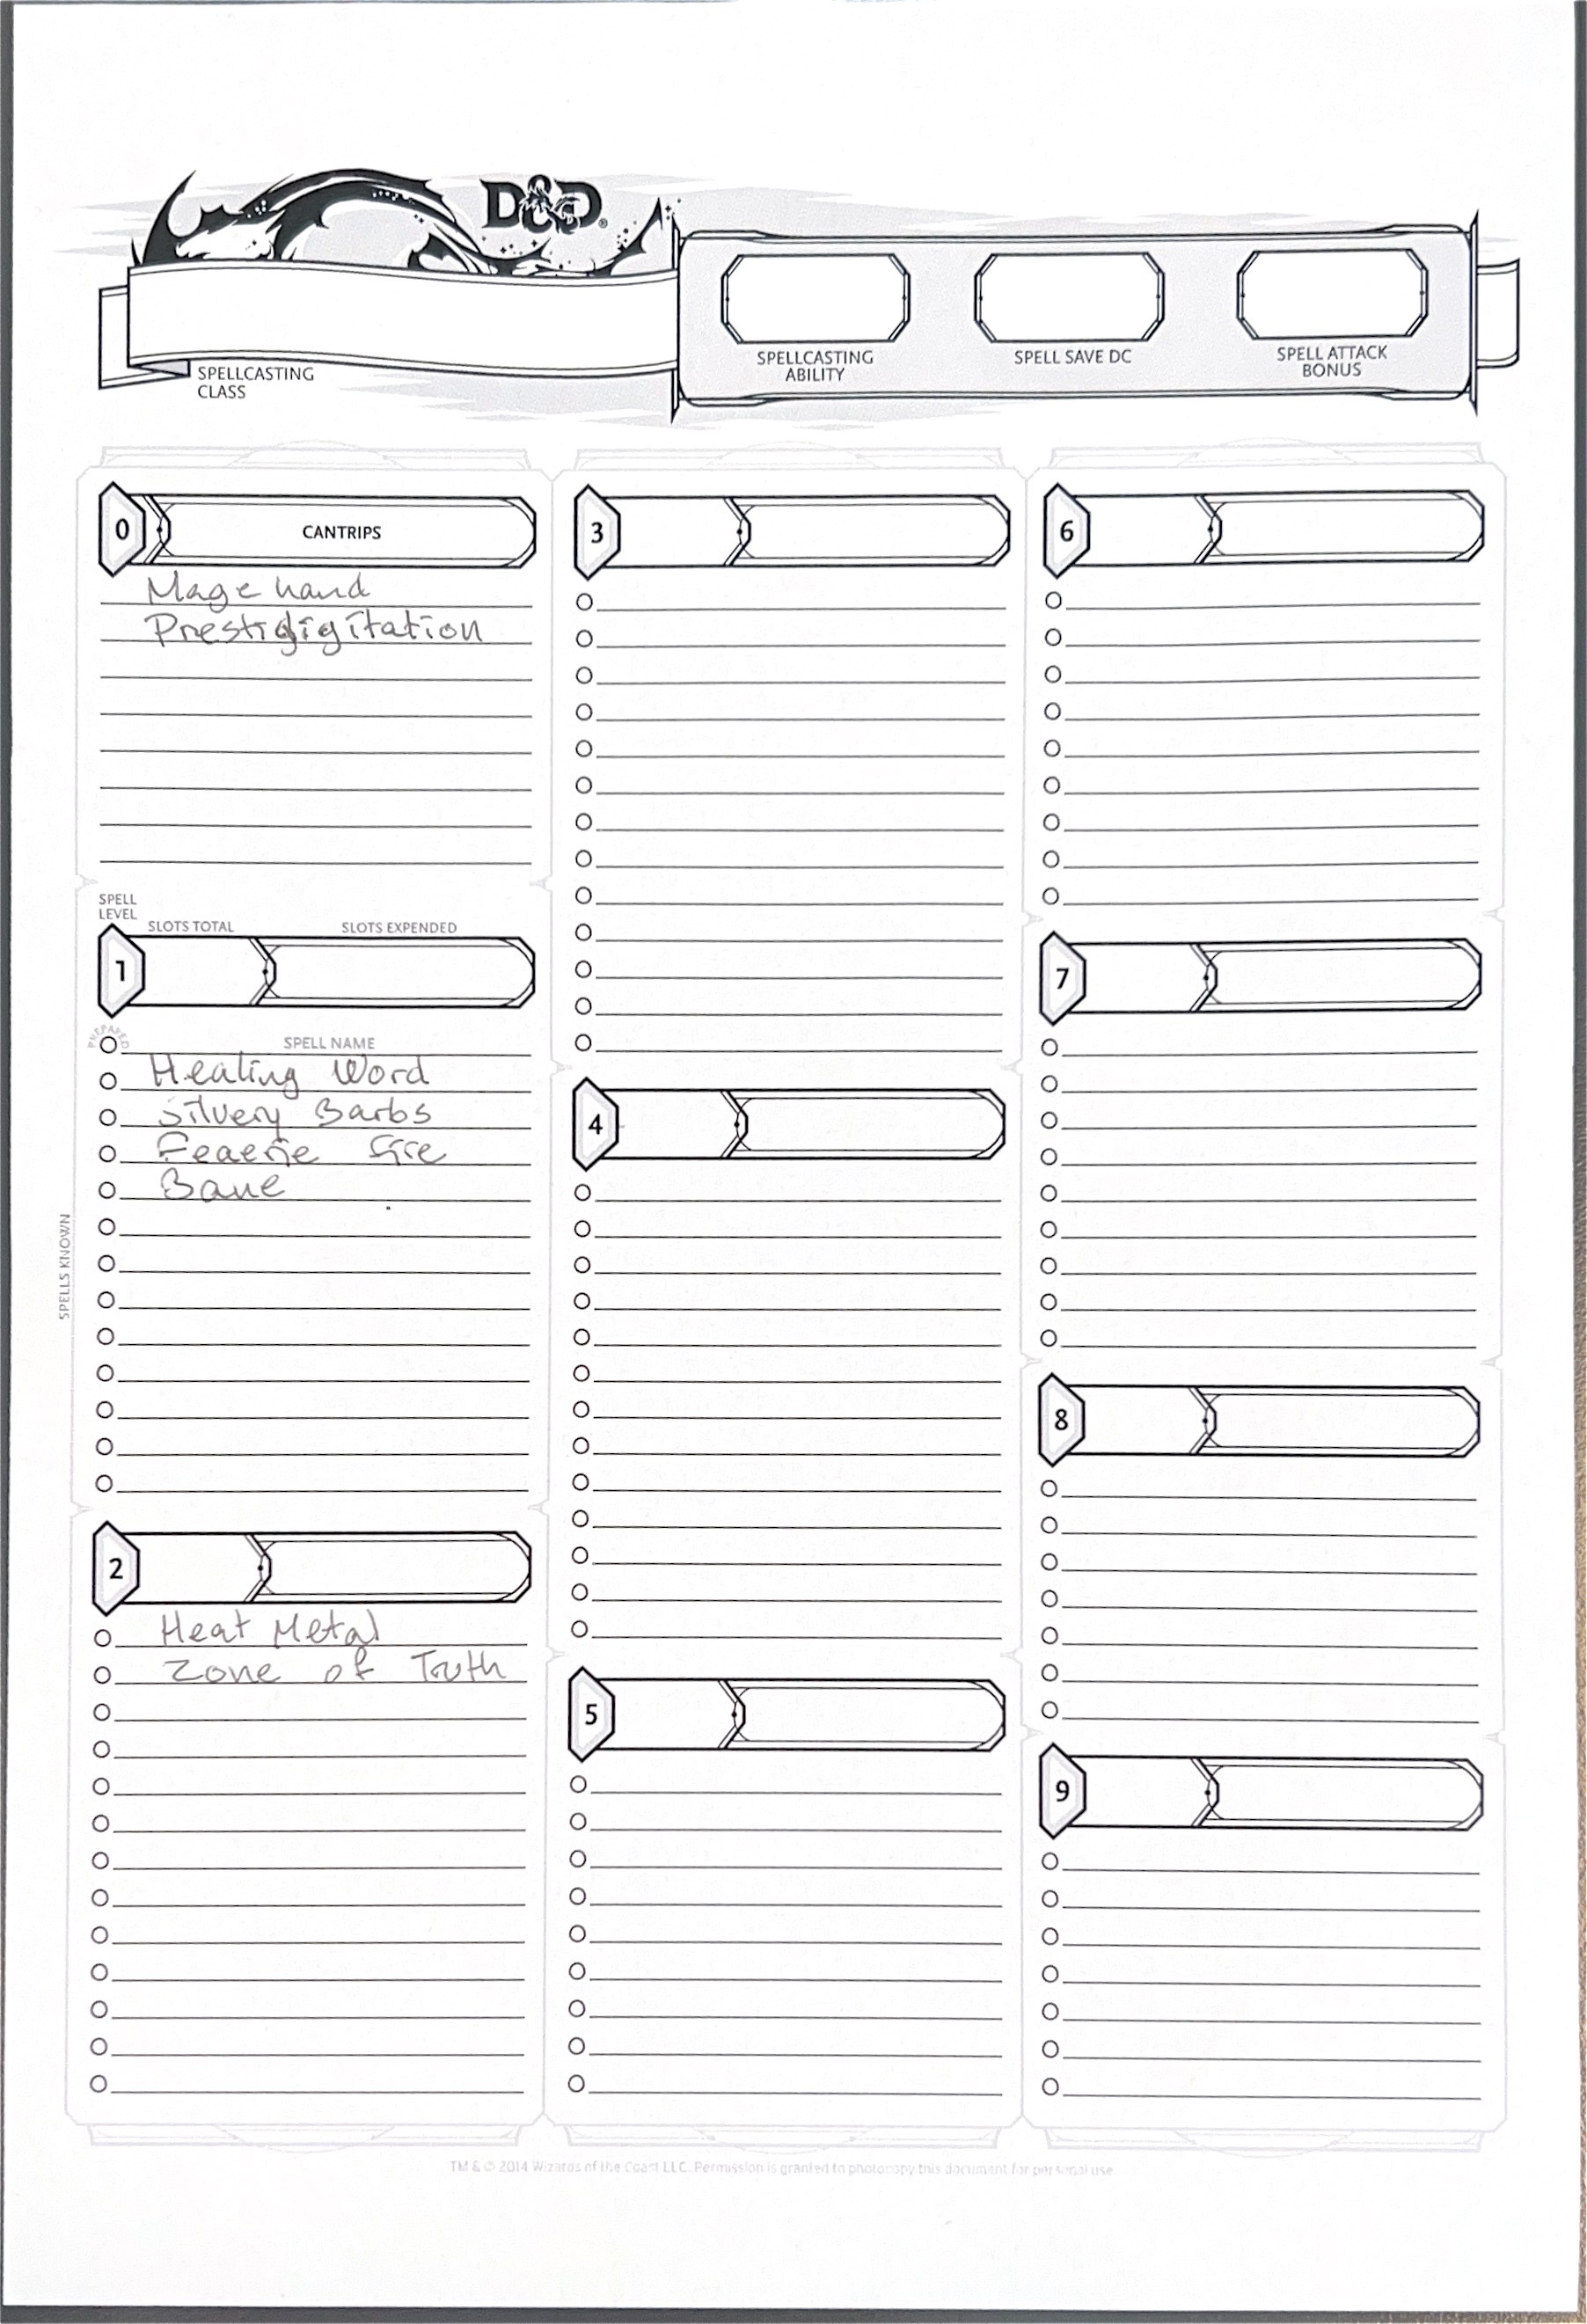 D&D®
SPELLCASTING
CLASS
SPELLCASTING
ABILITY
SPELL SAVE DC
SPELL ATTACK
BONUS
0
CANTRIPS
Mage hand
Prestidigitation
SPELL
LEVEL
SLOTS TOTAL
SLOTS EXPENDED
1
PREPARED
SPELL NAME
Healing Word
Silvery Barbs
Feaerie fire
Bane
SPELLS KNOWN
2
Heat Metal
Zone of Truth
3
4
5
6
7
8
9
TM & © 2014 Wizards of the Coast LLC. Permission is granted to photocopy this document for personal use.